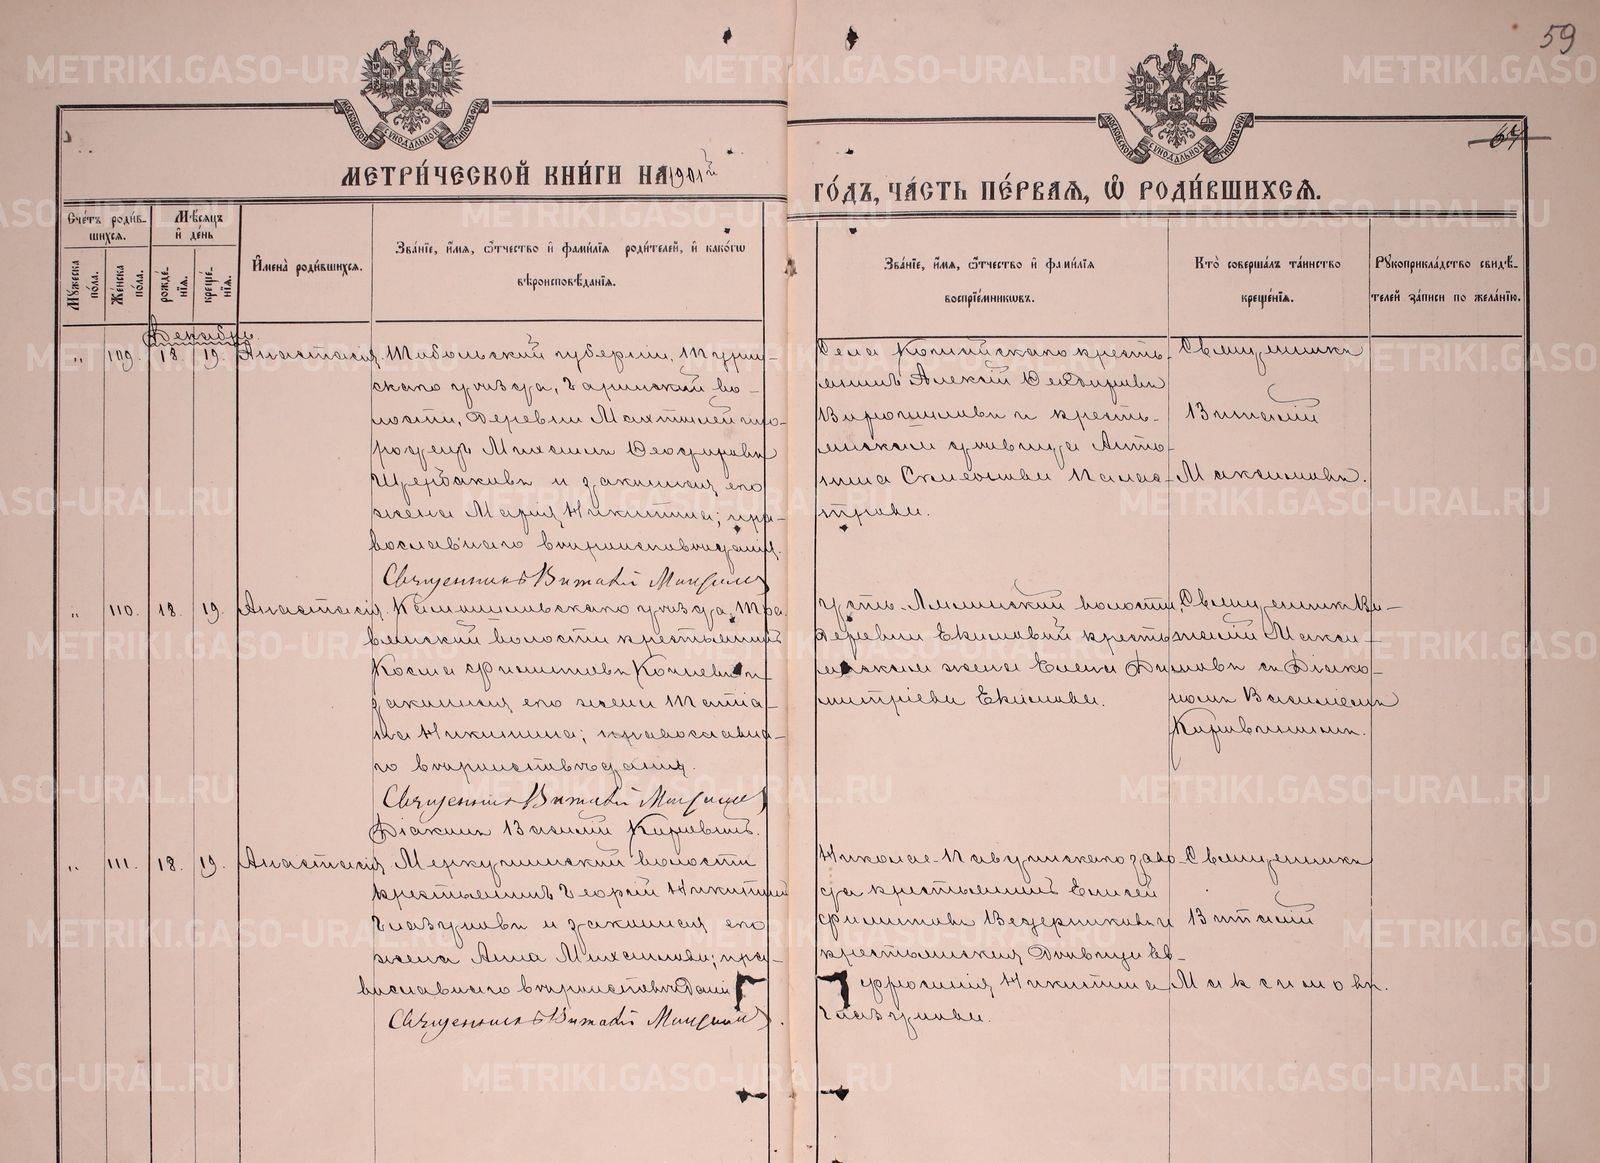 59
64
МЕТРИ́ЧЕСКОЙ КНИ́ГИ НА 1901й ГО́ДЪ, ЧА́СТЬ ПЕ́РВАЯ, Ѿ РОДИ́ВШИХСЯ.
Сче́тъ роди́в-
шихся.
Мꙋжеска по́ла.
Же́нска по́ла.
Мѣ́сяцъ
и҆ де́нь
рожде́нїя.
креще́нїя.
И҆мена̀ роди́вшихся.
Зва́нїе, и҆́мя, ѻ҆́тчество и҆ фами́лїя роди́телей, и҆ како́гѡ
вѣроисповѣ́данїя.
Зва́нїе, и҆́мя, ѻ҆́тчество и҆ фами́лїя
воспрїе́мникѡвъ.
Кто̀ соверша́лъ та́инство
креще́нїя.
Рꙋкоприкла́дство свидѣ́-
телей за́писи по жела́нїю.
Декабрь
" 109. 18. 19. Анастасія.
Тобольской губерніи, Турин-
скаго уѣзда, Гаринской во-
лости, деревни
Михаилъ
Щербаковъ и законная его
жена Марія Никитина; пра-
вославнаго вѣроисповѣданія.
Священникъ Виталій Максимовъ
Села кресть-
янинъ Алексій
и кресть-
янская дѣвица Анто-
нина
Священникъ
Виталій
Максимовъ.
" 110. 18. 19. Анастасія.
Камышловскаго уѣзда,
волости крестьянинъ
Косма Филипповъ и
законная его жена Татіа-
на Никитина; православна-
го вѣроисповѣданія.
Священникъ Виталій Максимовъ
Діаконъ Василій
волости,
деревни Екимовой кресть-
янская жена Елена Ди-
митріева Екимова.
Священникъ Ви-
талій Макси-
мовъ съ Діако-
номъ Василіемъ
" 111. 18. 19. Анастасія
Меркушинской волости
крестьянинъ Георгій Никитинъ
Глазуновъ и законная его
жена Анна Михаилова; пра-
вославнаго вѣроисповѣданія
Священникъ Виталій Максимовъ.
Николае-Павдинскаго заво-
да крестьянинъ Елисей
Филипповъ Ведерниковъ и
крестьянская дѣвица Ев-
фросинія Никитина
Глазунова.
Священникъ
Виталій
Максимовъ.
METRIKI.GASO-URAL.RU